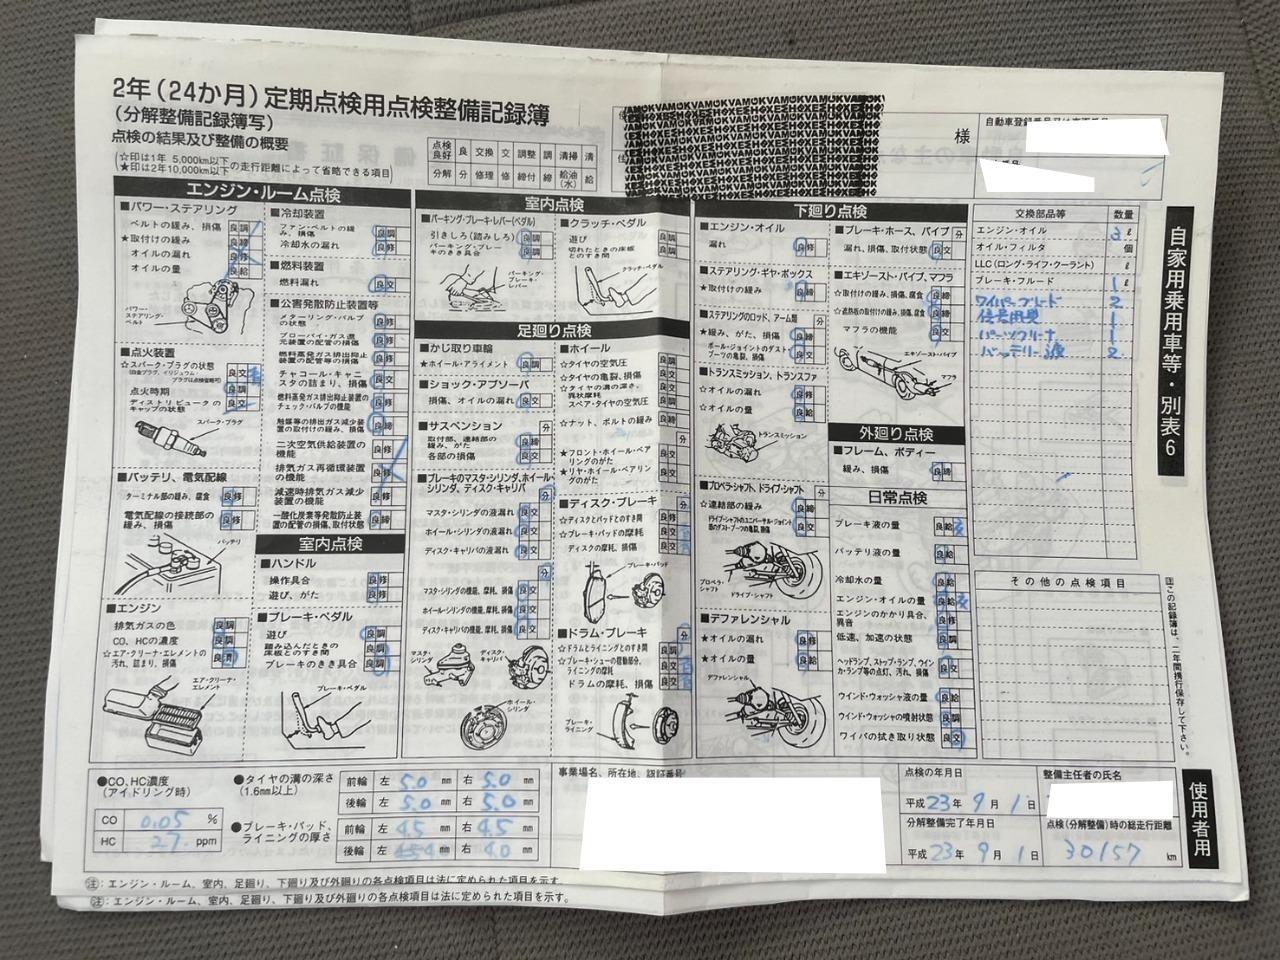 2年(24か月)定期点検用点検整備記録簿
(分解整備記録簿写)
点検の結果及び整備の概要
(☆印は1年 5,000km以下
★印は2年10,000km以下の走行距離によって省略できる項目)
点検良好 良 交換 交 調整 調 清掃 清
分解 分 修理 修 締付 締 給油(水) 給
様
エンジン・ルーム点検
■パワー・ステアリング
ベルトの緩み、損傷
★取付けの緩み
オイルの漏れ
オイルの量
パワー・ステアリング・ベルト
■点火装置
☆スパーク・プラグの状態
点火時期
ディストリビュータのキャップの状態
スパーク・プラグ
■バッテリ、電気配線
ターミナル部の緩み、腐食
電気配線の接続部の緩み、損傷
バッテリ
■エンジン
排気ガスの色
CO、HCの濃度
☆エア・クリーナ・エレメントの汚れ、詰まり、損傷
エア・クリーナ・エレメント
■冷却装置
ファン・ベルトの緩み、損傷
冷却水の漏れ
■燃料装置
燃料漏れ
■公害発散防止装置等
メターリング・バルブの状態
ブローバイ・ガス還元装置の配管の損傷
燃料蒸発ガス排出抑止装置の配管等の損傷
チャコール・キャニスタの詰まり、損傷
燃料蒸発ガス排出抑止装置のチェック・バルブの機能
触媒等の排出ガス減少装置の取付けの緩み、損傷
二次空気供給装置の機能
排気ガス再循環装置の機能
減速時排気ガス減少装置の機能
一酸化炭素等発散防止装置の配管の損傷、取付状態
室内点検
■ハンドル
操作具合
遊び、がた
■ブレーキ・ペダル
遊び
踏み込んだときの床板とのすき間
ブレーキのきき具合
ブレーキ・ペダル
室内点検
■パーキング・ブレーキ・レバー(ペダル)
引きしろ(踏みしろ)
パーキング・ブレーキのきき具合
パーキング・ブレーキ・レバー
■クラッチ・ペダル
遊び
切れたときの床板とのすき間
クラッチ・ペダル
足廻り点検
■かじ取り車輪
★ホイール・アライメント
■ショック・アブソーバ
損傷、オイルの漏れ
■サスペンション
取付部、連結部の緩み、がた
各部の損傷
■ブレーキのマスタ・シリンダ、ホイール・シリンダ、ディスク・キャリパ
マスタ・シリンダの液漏れ
ホイール・シリンダの液漏れ
ディスク・キャリパの液漏れ
マスタ・シリンダの機能、摩耗、損傷
ホイール・シリンダの機能、摩耗、損傷
ディスク・キャリパの機能、摩耗、損傷
マスタ・シリンダ
ディスク・キャリパ
ホイール・シリンダ
■ホイール
☆タイヤの空気圧
☆タイヤの亀裂、損傷
☆タイヤの溝の深さ、異状摩耗
スペア・タイヤの空気圧
☆ナット、ボルトの緩み
★フロント・ホイール・ベアリングのがた
★リヤ・ホイール・ベアリングのがた
■ディスク・ブレーキ
☆ディスクとパッドとのすき間
☆ブレーキ・パッドの摩耗
ディスクの摩耗、損傷
ブレーキ・パッド
■ドラム・ブレーキ
☆ドラムとライニングとのすき間
☆ブレーキ・シューの摺動部分、ライニングの摩耗
ドラムの摩耗、損傷
ブレーキ・ライニング
下廻り点検
■エンジン・オイル
漏れ
■ステアリング・ギヤ・ボックス
★取付けの緩み
■ステアリングのロッド、アーム類
★緩み、がた、損傷
ボール・ジョイントのダスト・ブーツの亀裂、損傷
■トランスミッション、トランスファ
☆オイルの漏れ
☆オイルの量
トランスミッション
■プロペラ・シャフト、ドライブ・シャフト
☆連結部の緩み
ドライブ・シャフトのユニバーサル・ジョイント部のダスト・ブーツの亀裂、損傷
プロペラ・シャフト
ドライブ・シャフト
■デファレンシャル
★オイルの漏れ
★オイルの量
デファレンシャル
■ブレーキ・ホース、パイプ
漏れ、損傷、取付状態
■エキゾースト・パイプ、マフラ
☆取付けの緩み、損傷、腐食
☆遮熱板の取付けの緩み、損傷、腐食
マフラの機能
エキゾースト・パイプ
マフラ
外廻り点検
■フレーム、ボディー
緩み、損傷
日常点検
ブレーキ液の量
バッテリ液の量
冷却水の量
エンジン・オイルの量
エンジンのかかり具合、異音
低速、加速の状態
ヘッドランプ、ストップ・ランプ、ウインカ・ランプ等の点灯、汚れ、損傷
ウインド・ウォッシャ液の量
ウインド・ウォッシャの噴射状態
ワイパの拭き取り状態
交換部品等 数量
エンジン・オイル 3 ℓ
オイル・フィルタ 個
LLC(ロング・ライフ・クーラント) ℓ
ブレーキ・フルード 1 ℓ
ワイパーブレード 2
発煙筒 1
パーツクリーナ 1
バッテリー液 2
その他の点検項目
自家用乗用車等・別表6
注 この記録簿は、二年間携行保存して下さい。
使用者用
●CO、HC濃度
(アイドリング時)
CO 0.05 %
HC 27 ppm
●タイヤの溝の深さ
(1.6mm以上)
前輪 左 5.0 mm 右 5.0 mm
後輪 左 5.0 mm 右 5.0 mm
●ブレーキ・パッド、ライニングの厚さ
前輪 左 4.5 mm 右 4.5 mm
後輪 左 4.0 mm 右 4.0 mm
事業場名、所在地、認証番号
点検の年月日
平成23年9月1日
分解整備完了年月日
平成23年9月1日
整備主任者の氏名
点検(分解整備)時の総走行距離
30157 km
注:エンジン・ルーム、室内、足廻り、下廻り及び外廻りの各点検項目は法に定められた項目を示す。
注:エンジン・ルーム、室内、足廻り、下廻り及び外廻りの各点検項目は法に定められた項目を示す。